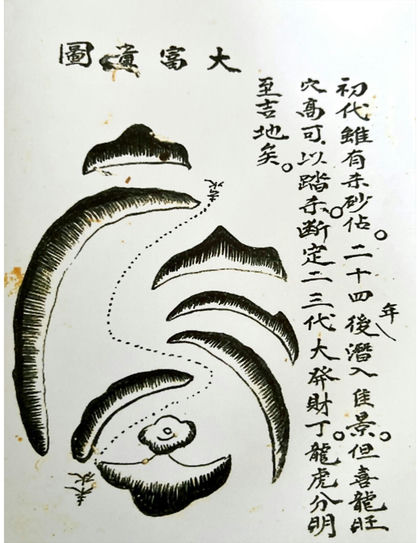 大富貴圖
初代雖有砂佔。二十四年後潛入佳景。但喜龍旺
穴高可以踏。断定二三代大發財丁。龍虎分明
至吉地矣。